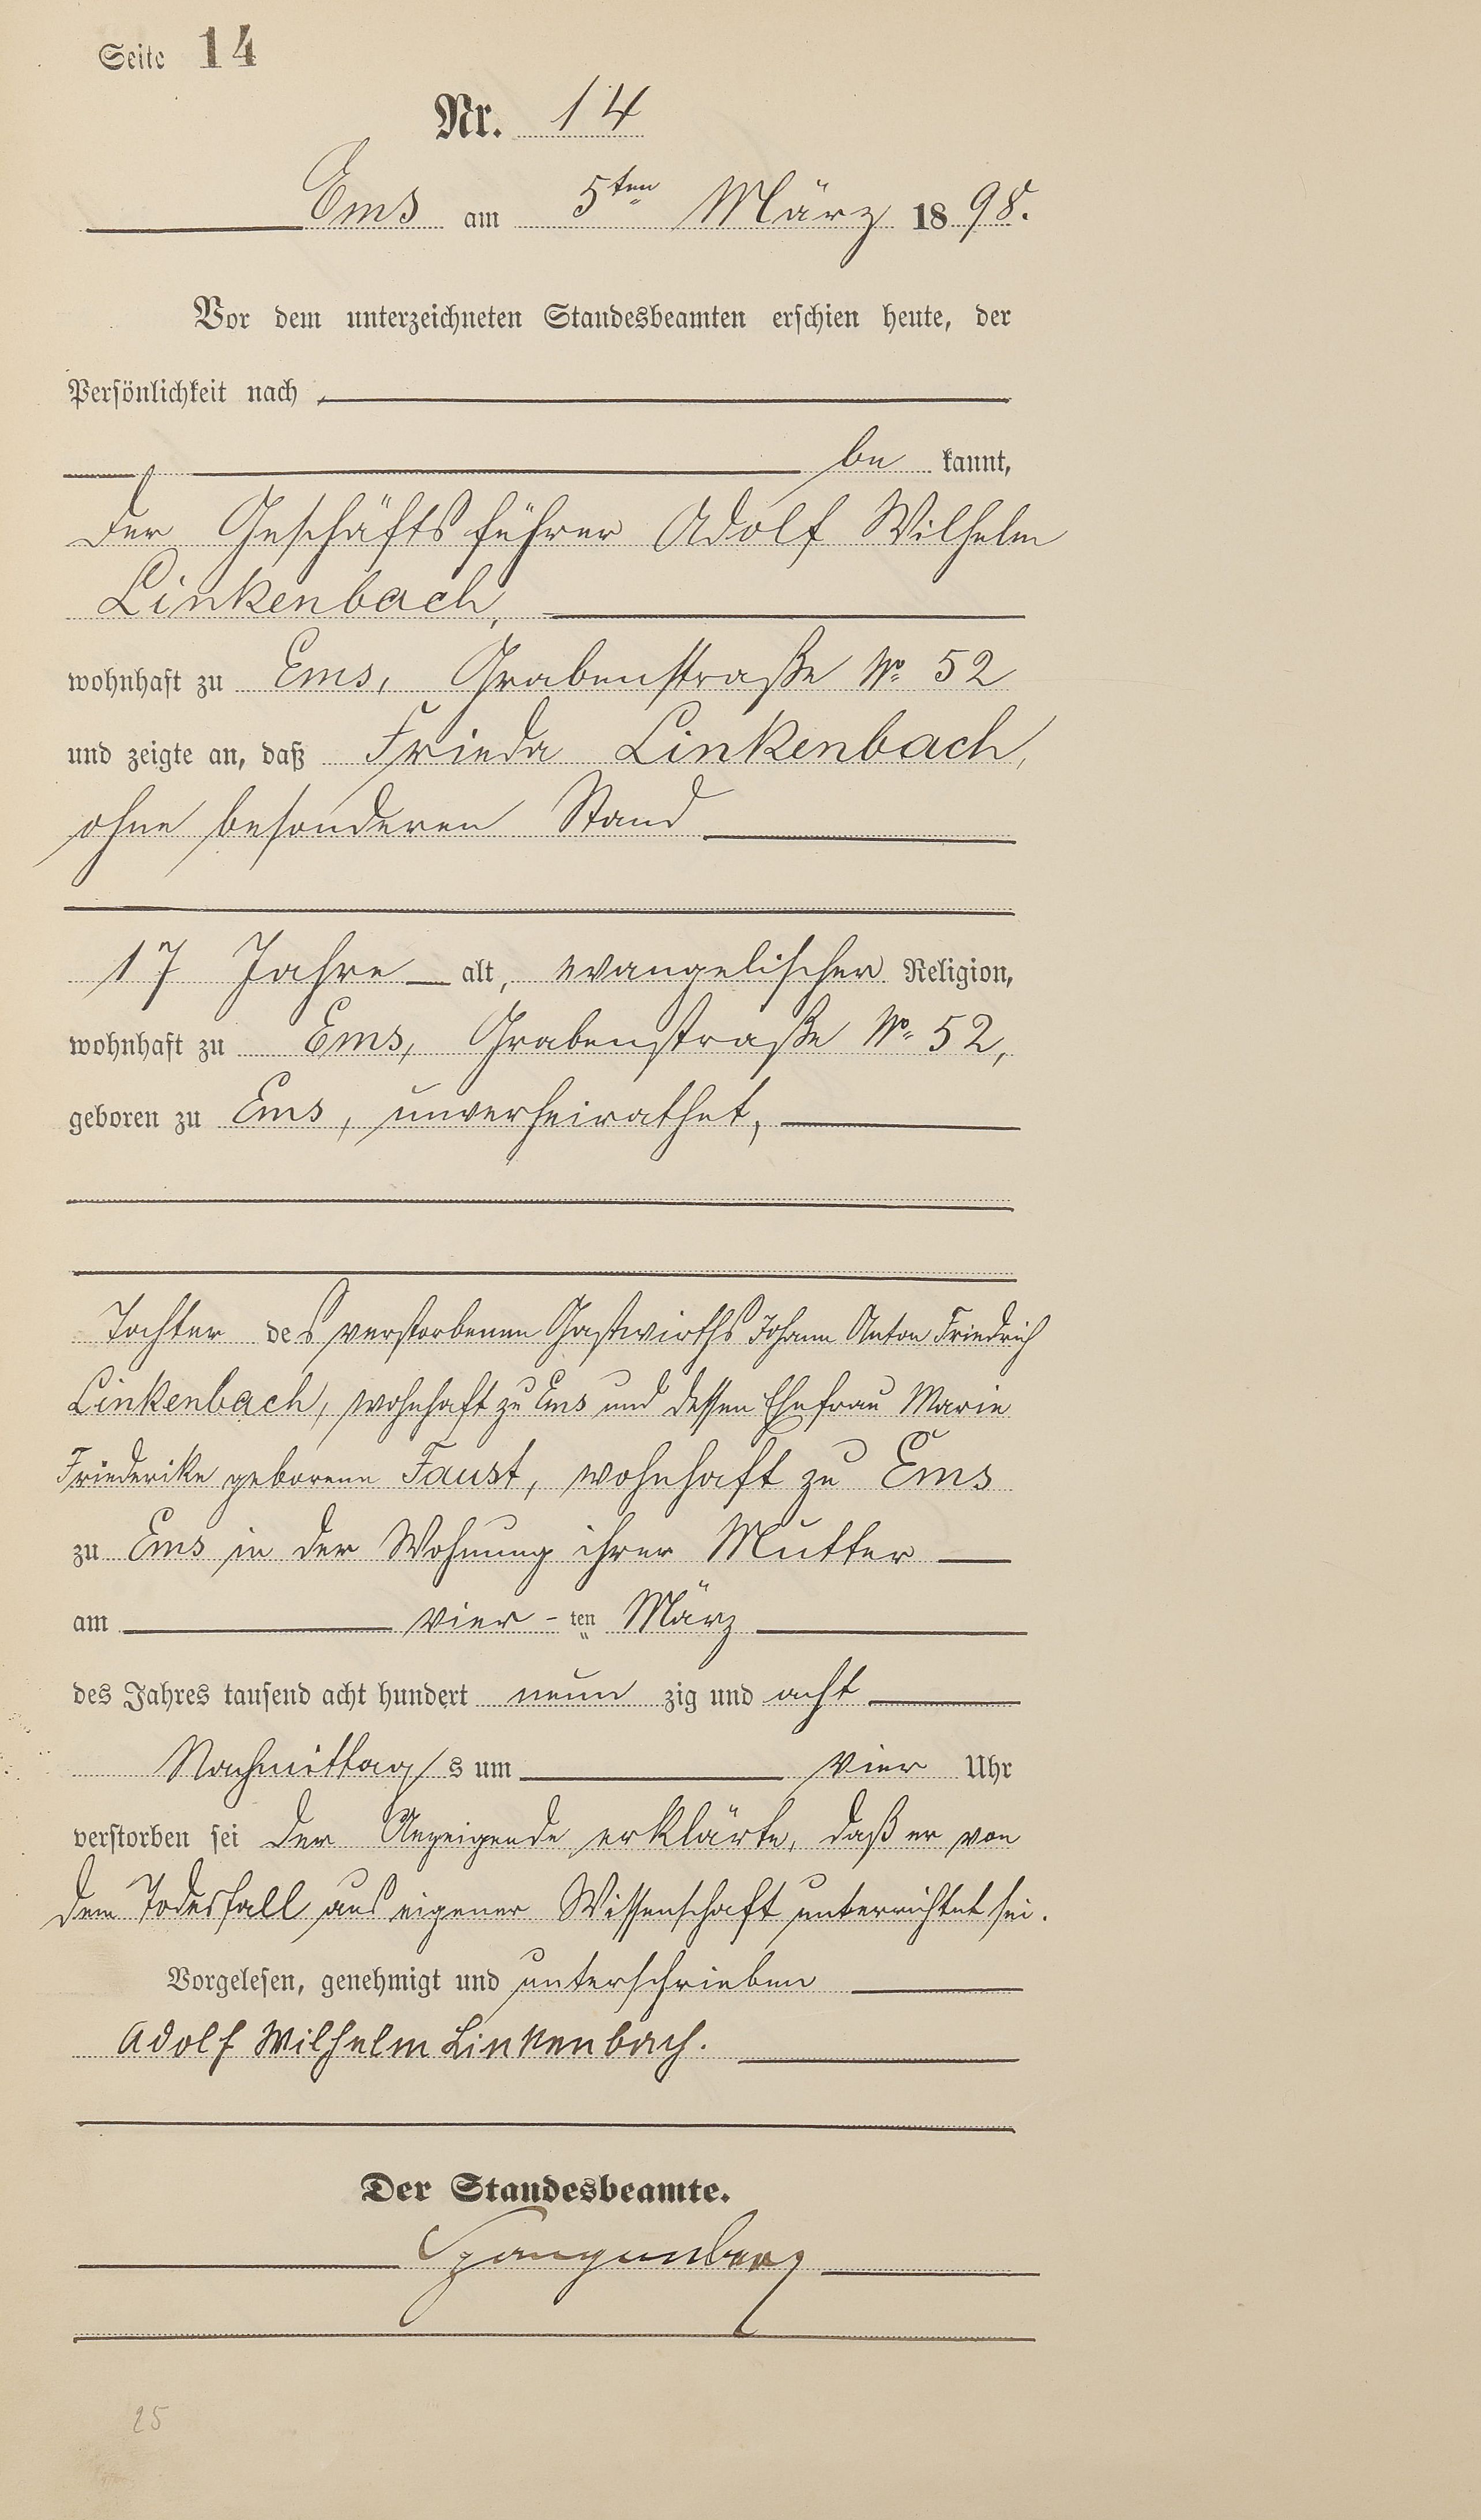 Seite 14
Nr. 14
Ems am 5ten März 1898.
Vor dem unterzeichneten Standesbeamten erschien heute, der
Persönlichkeit nach
be kannt,
der Geschäftsführer Adolf Wilhelm
Linkenbach,
wohnhaft zu Ems, Grabenstraße No 52
und zeigte an, daß Frieda Linkenbach,
ohne besonderen Stand
17 Jahre alt, evangelischer Religion,
wohnhaft zu Ems, Grabenstraße No 52,
geboren zu Ems, unverheirathet,
Tochter des verstorbenen Gastwirths Johann Anton Friedrich
Linkenbach, wohnhaft zu Ems und dessen Ehefrau Marie
Friederike geborene Faust, wohnhaft zu Ems
zu Ems in der Wohnung ihrer Mutter
am vier-ten März
des Jahres tausend acht hundert neun zig und acht
Nachmittag s um vier Uhr
verstorben sei der Anzeigende erklärte, daß er von
dem Todesfall aus eigener Wissenschaft unterrichtet sei.
Vorgelesen, genehmigt und unterschrieben
Adolf Wilhelm Linkenbach.
Der Standesbeamte.
Spangenberg
25